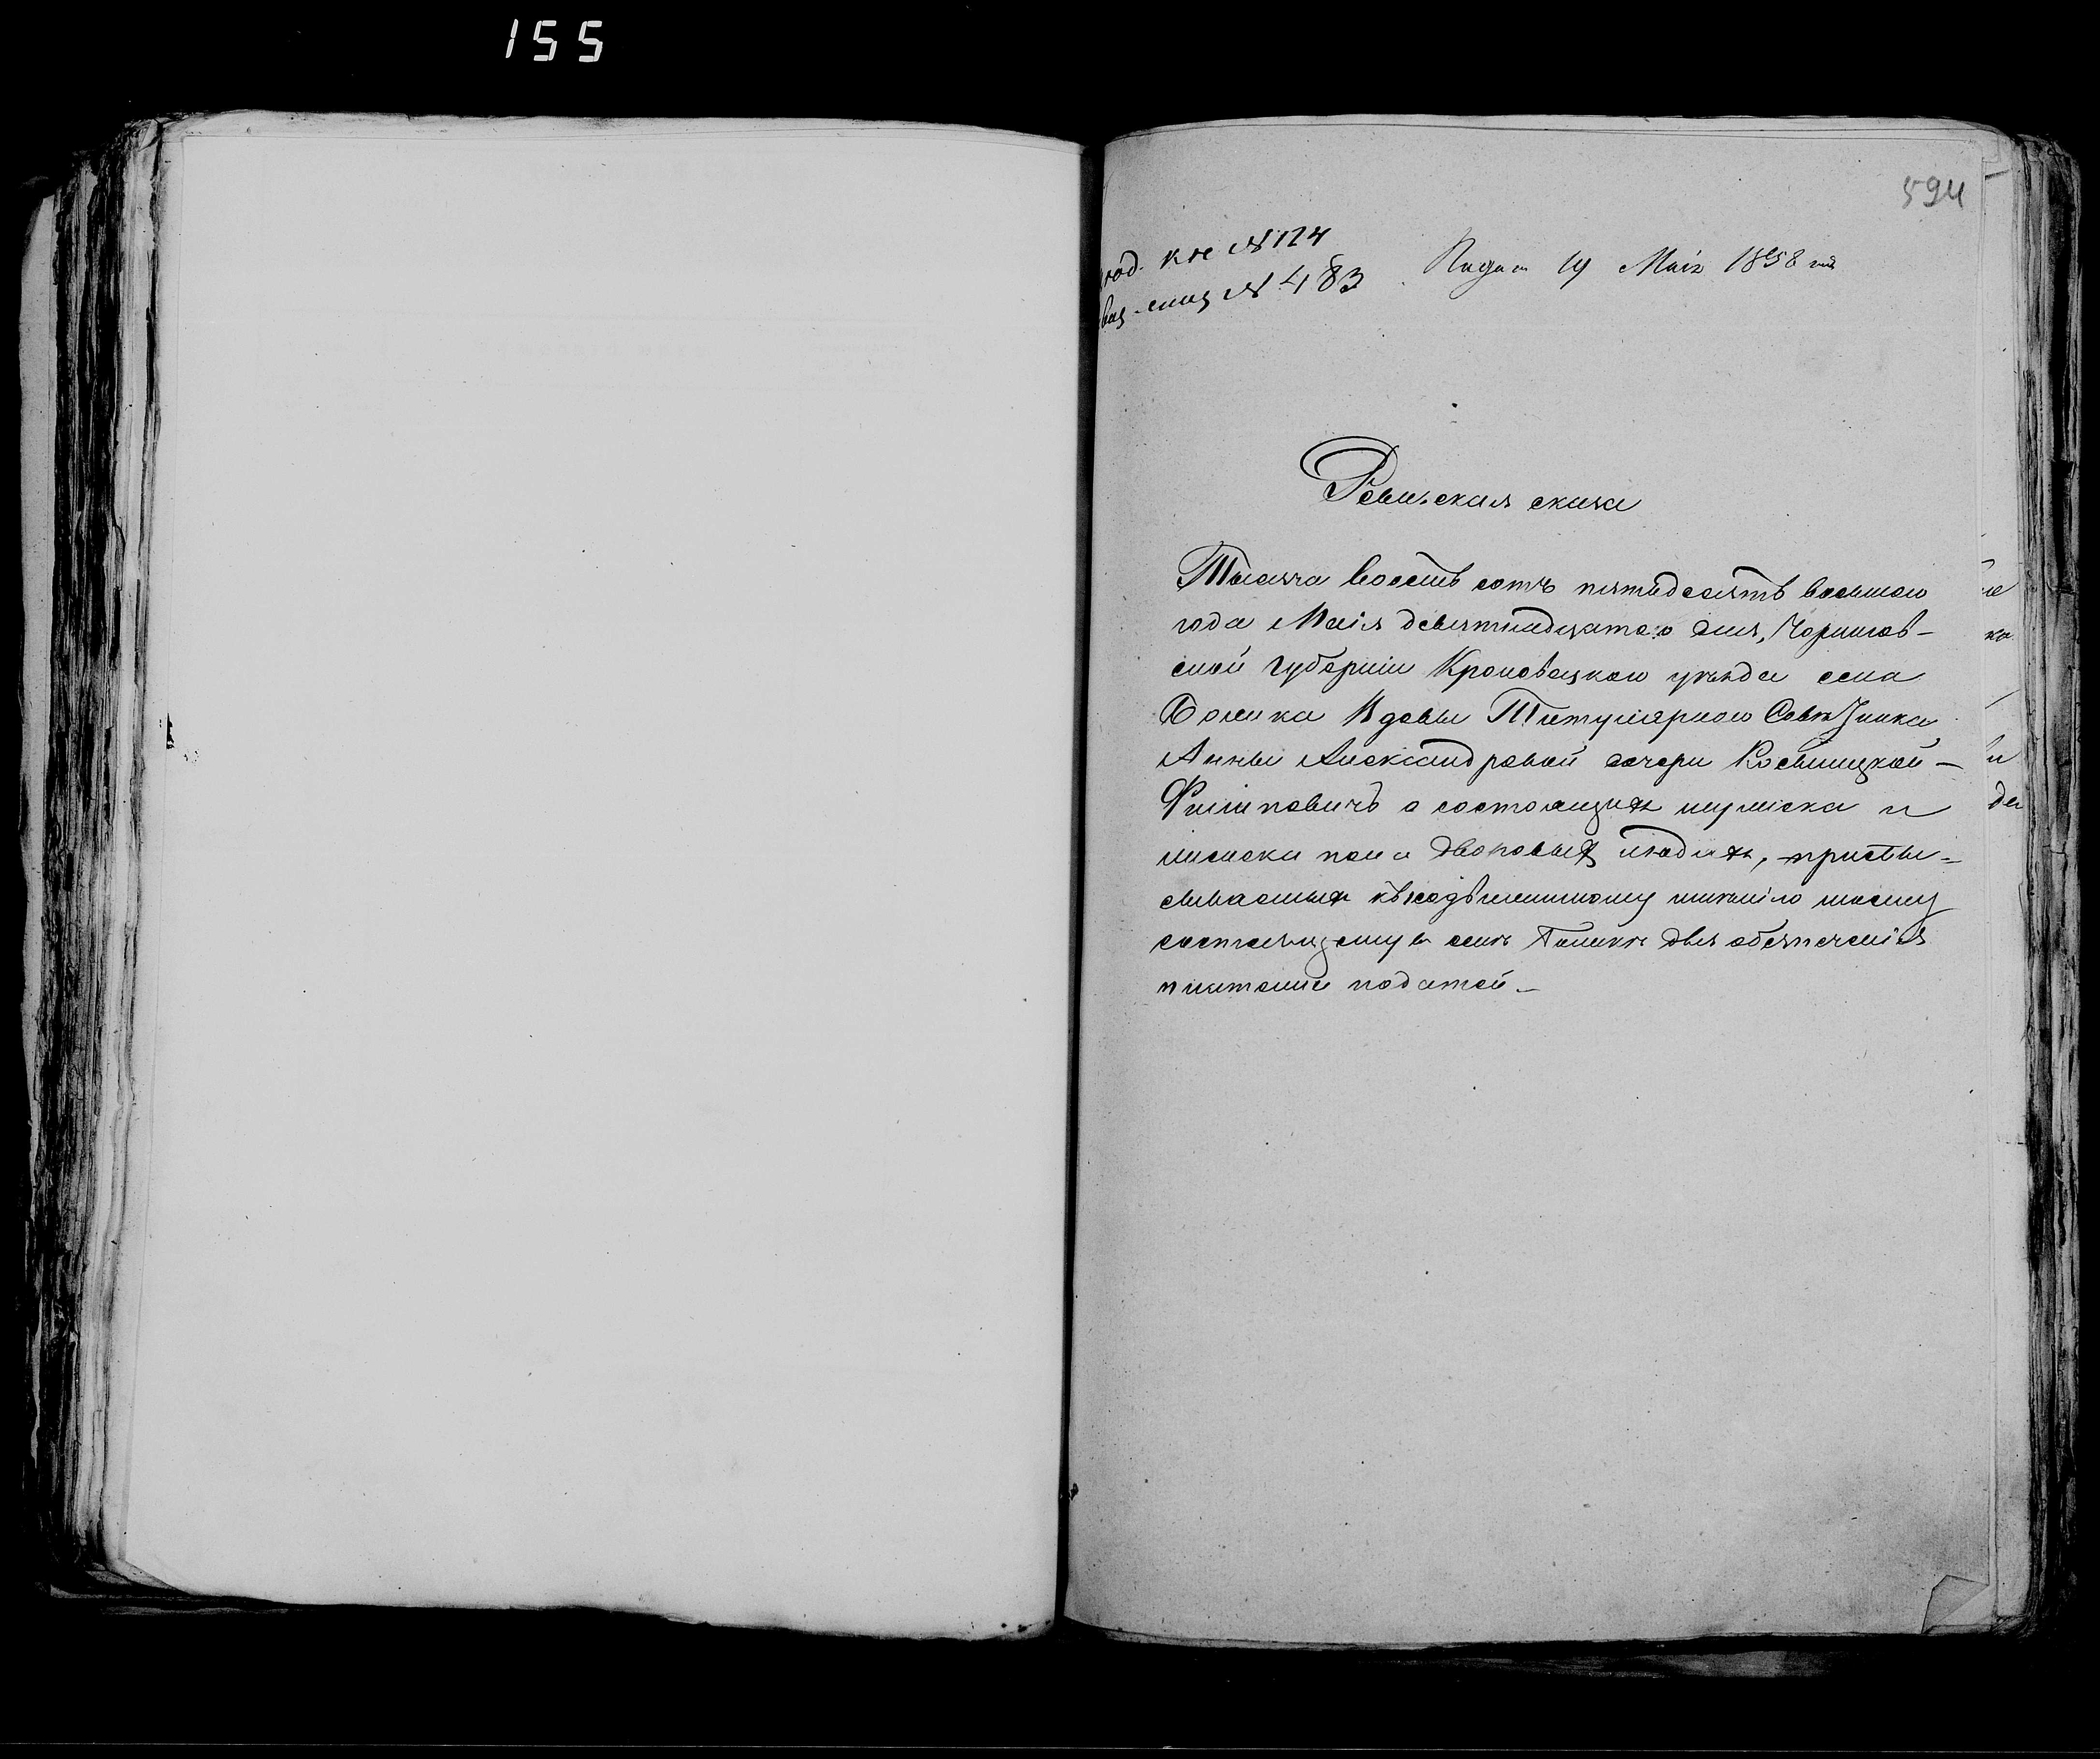 155
594
под. кне №124
№ 483
Подан 19 Маія 1858 года
Ревизская сказка
Тысяча восемь сотъ пятьдесятъ восьмаго
года Маія девятнадцатаго дня, Чернигов-
ской губерніи Кролевецкаго уѣзда села
Вдовы Титулярнаго Совѣтника
Анны Александровой дочери
Филиповичъ о состоящихъ мужеска и
женска пола дворовыхъ людяхъ, приписы-
ваемыхъ къ недвижимому имѣнію моему
состоящему въ селѣ для обезпеченія
платежа податей.